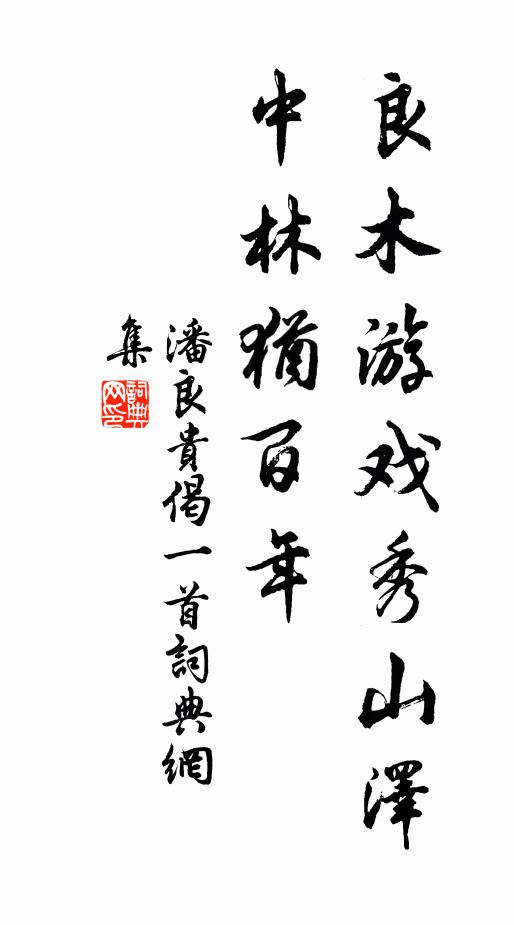 良木游戏秀山澤
中林猶百年
潘良貴偈一首詞典網
集
詞典
网印